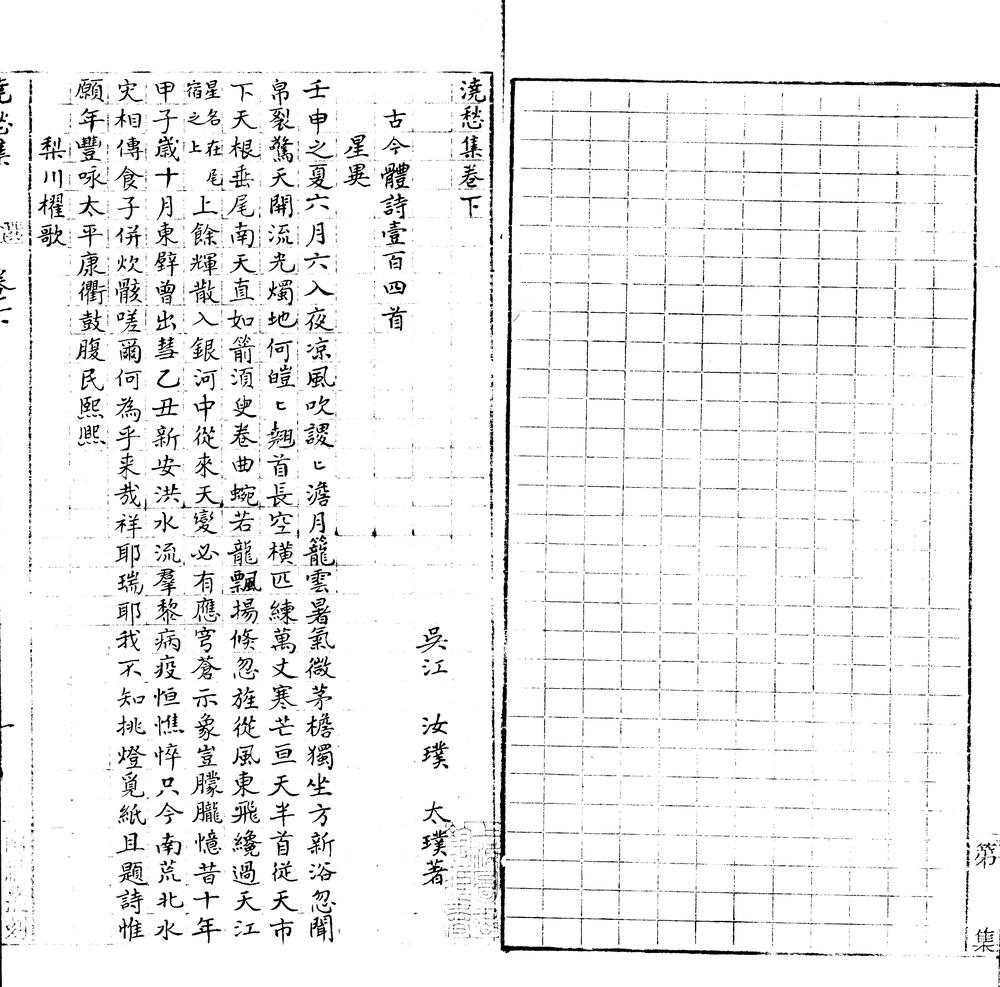 澆愁集卷下
吳江　汝璞　太璞著
古今體詩壹百四首
星異
壬申之夏六月六入夜凉風吹謖〻澹月籠雲暑氣微茅檐獨坐方新浴忽聞
帛裂驚天開流光燭地何皚〻翹首長空橫匹練萬丈寒芒亘天半首從天市
下天根垂尾南天直如箭須臾卷曲蜿若龍飄揚倏忽旌從風東飛纔過天江
星名在尾宿之上上餘輝散入銀河中從來天變必有應穹蒼示象豈朦朧憶昔十年
甲子歲十月東壁曾出彗乙丑新安洪水流羣黎病疫恒憔悴只今南荒北水
灾相傳食子併炊骸嗟爾何為乎来哉祥耶瑞耶我不知挑燈覓紙且題詩惟
願年豐咏太平康衢鼓腹民熙熙
梨川櫂歌
第
集